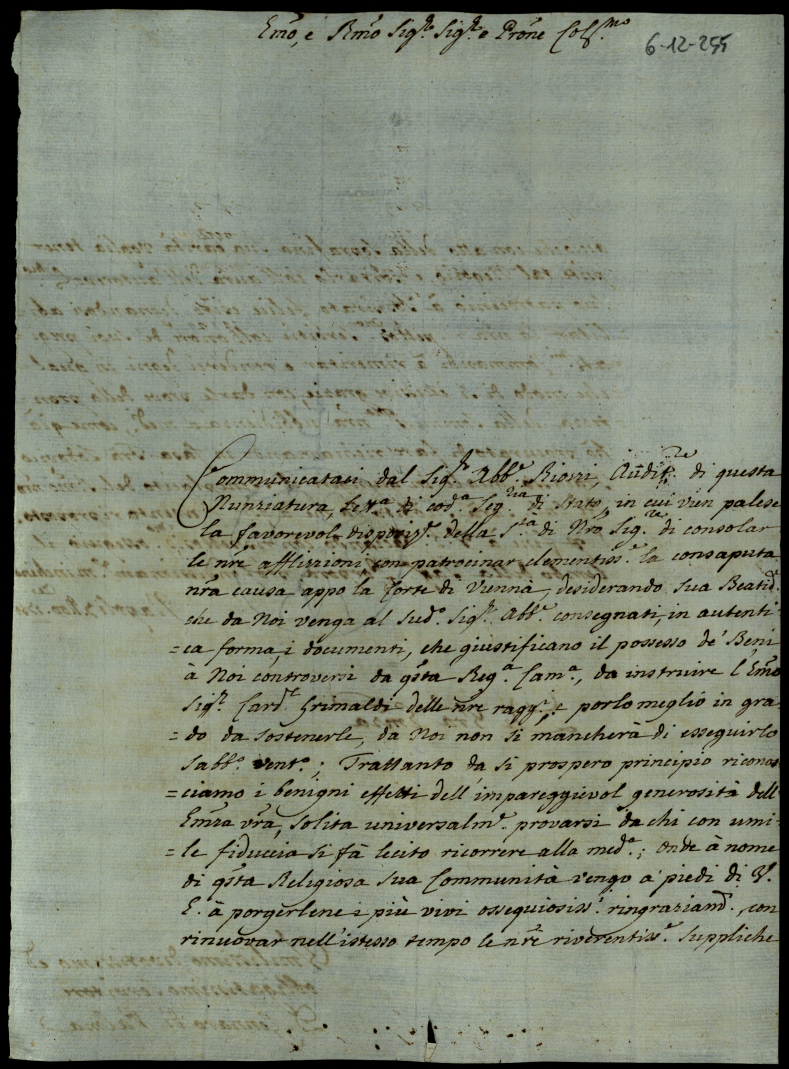 Emo, e Rmo Sig.r Sig.r e Prone Col.mo
6-12-255
Communicatasi dal Sig.r Abb.e Rionzi, Audit.re di questa
Nunziatura, lett.a di cod.a Seg.ria di Stato, in cui vien palese
la favorevol disposiz.e della S.tà di Nro Sig.re di consolar
le nre afflizioni, con patrocinar clementiss.e la consaputa
nra causa appo la Corte di Vienna, desiderando Sua Beatid.e
che da Noi venga al Sud.o Sig.r Abb.e consegnati, in autenti-
=ca forma, i documenti, che giustificano il possesso de' Beni
à Noi controversi da qsta Reg.a Cam.a, da instruire l'Emo
Sig.r Card.l Grimaldi delle nre ragg.i, e porlo meglio in gra-
=do da sostenerle, da Noi non si mancherà di esseguirlo
Sabb.o vent.o; Trattanto da sì prospero principio ricono-
=sciamo i benigni effetti dell'impareggievol generosità dell'
Emza vra, solita universalm.e provarsi da chi con umi-
=le fiduccia si fà lecito ricorrere alla med.a; onde à nome
di qsta Religiosa sua Communità vengo a' piedi di V.
E. à porgerlene i più vivi ossequiosiss.i ringraziam.i, con
rinuovar nell'istesso tempo le nre riverentiss.e suppliche